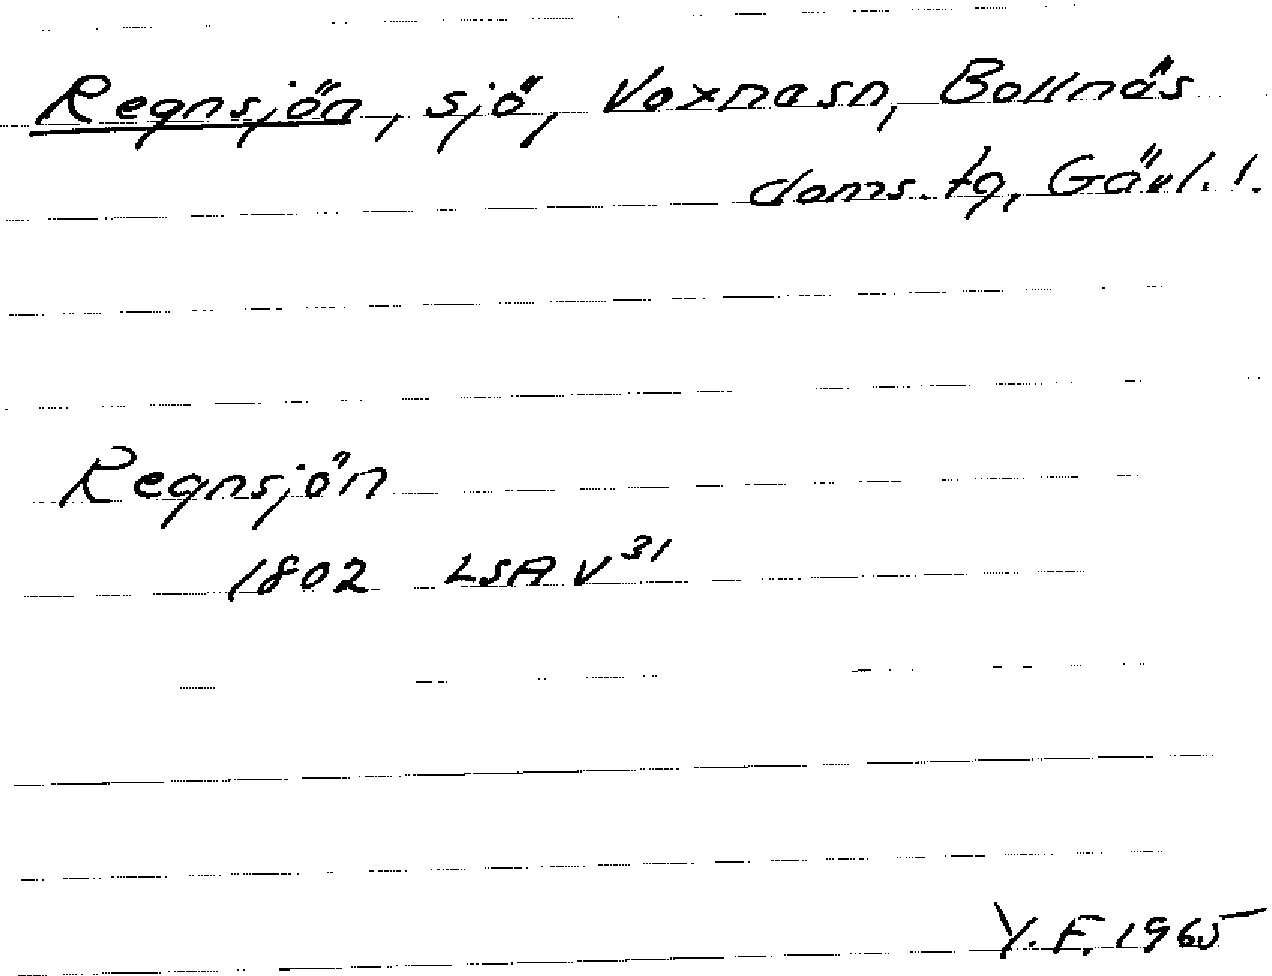 Regnsjön, sjö, Voxnasn, Bollnäs
doms. tg, Gävl. l.
Regnsjön
1802 LSA V 31
Y. F. 1965